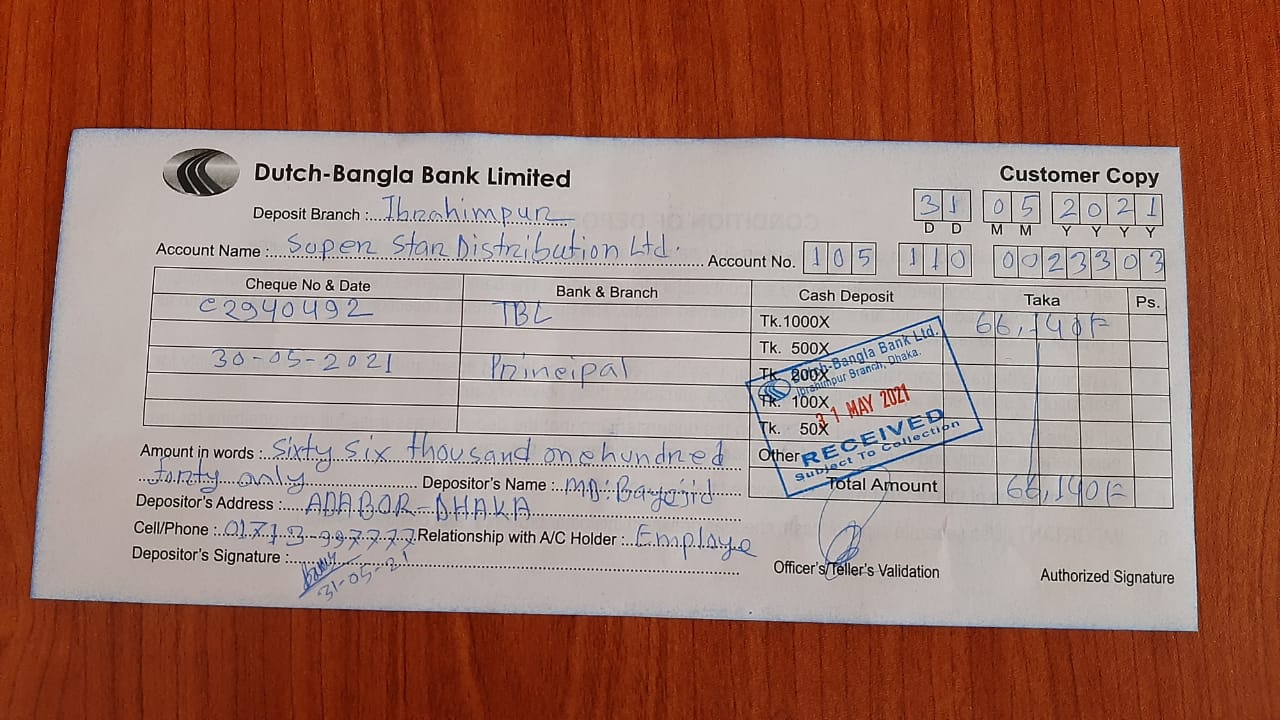 Dutch-Bangla Bank Limited
Customer Copy
Deposit Branch : Ibrahimpur
31 05 2021
D D M M Y Y Y Y
Account Name : Super Star Distribution Ltd.
Account No. 105 110 0023303
Cheque No & Date Bank & Branch Cash Deposit Taka Ps.
C2940492 TBL Tk.1000X 66,140/=
Tk. 500X
30-05-2021 Principal Tk. 200X
Tk. 100X
Tk. 50X
Other
Dutch-Bangla Bank Ltd.
Ibrahimpur Branch, Dhaka.
31 MAY 2021
RECEIVED
Subject To Collection
Amount in words : Sixty six thousand one hundred
forty only
Total Amount 66,140/=
Depositor's Name : MD: Bayejid
Depositor's Address : ADABOR-DHAKA
Cell/Phone : 01713-997777 Relationship with A/C Holder : Employe
Depositor's Signature :
31-05-21
Officer's/Teller's Validation
Authorized Signature